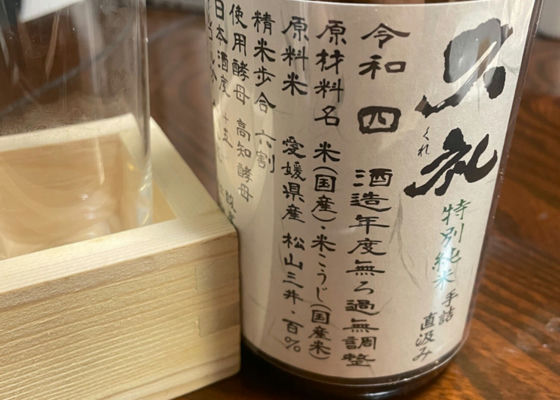 久礼
くれ
特別純米 手詰
直汲み
令和四 酒造年度無ろ過無調整
原材料名 米(国産)・米こうじ(国産米)
原料米 愛媛県産 松山三井・百%
精米歩合 六割
使用酵母 高知酵母
日本酒度